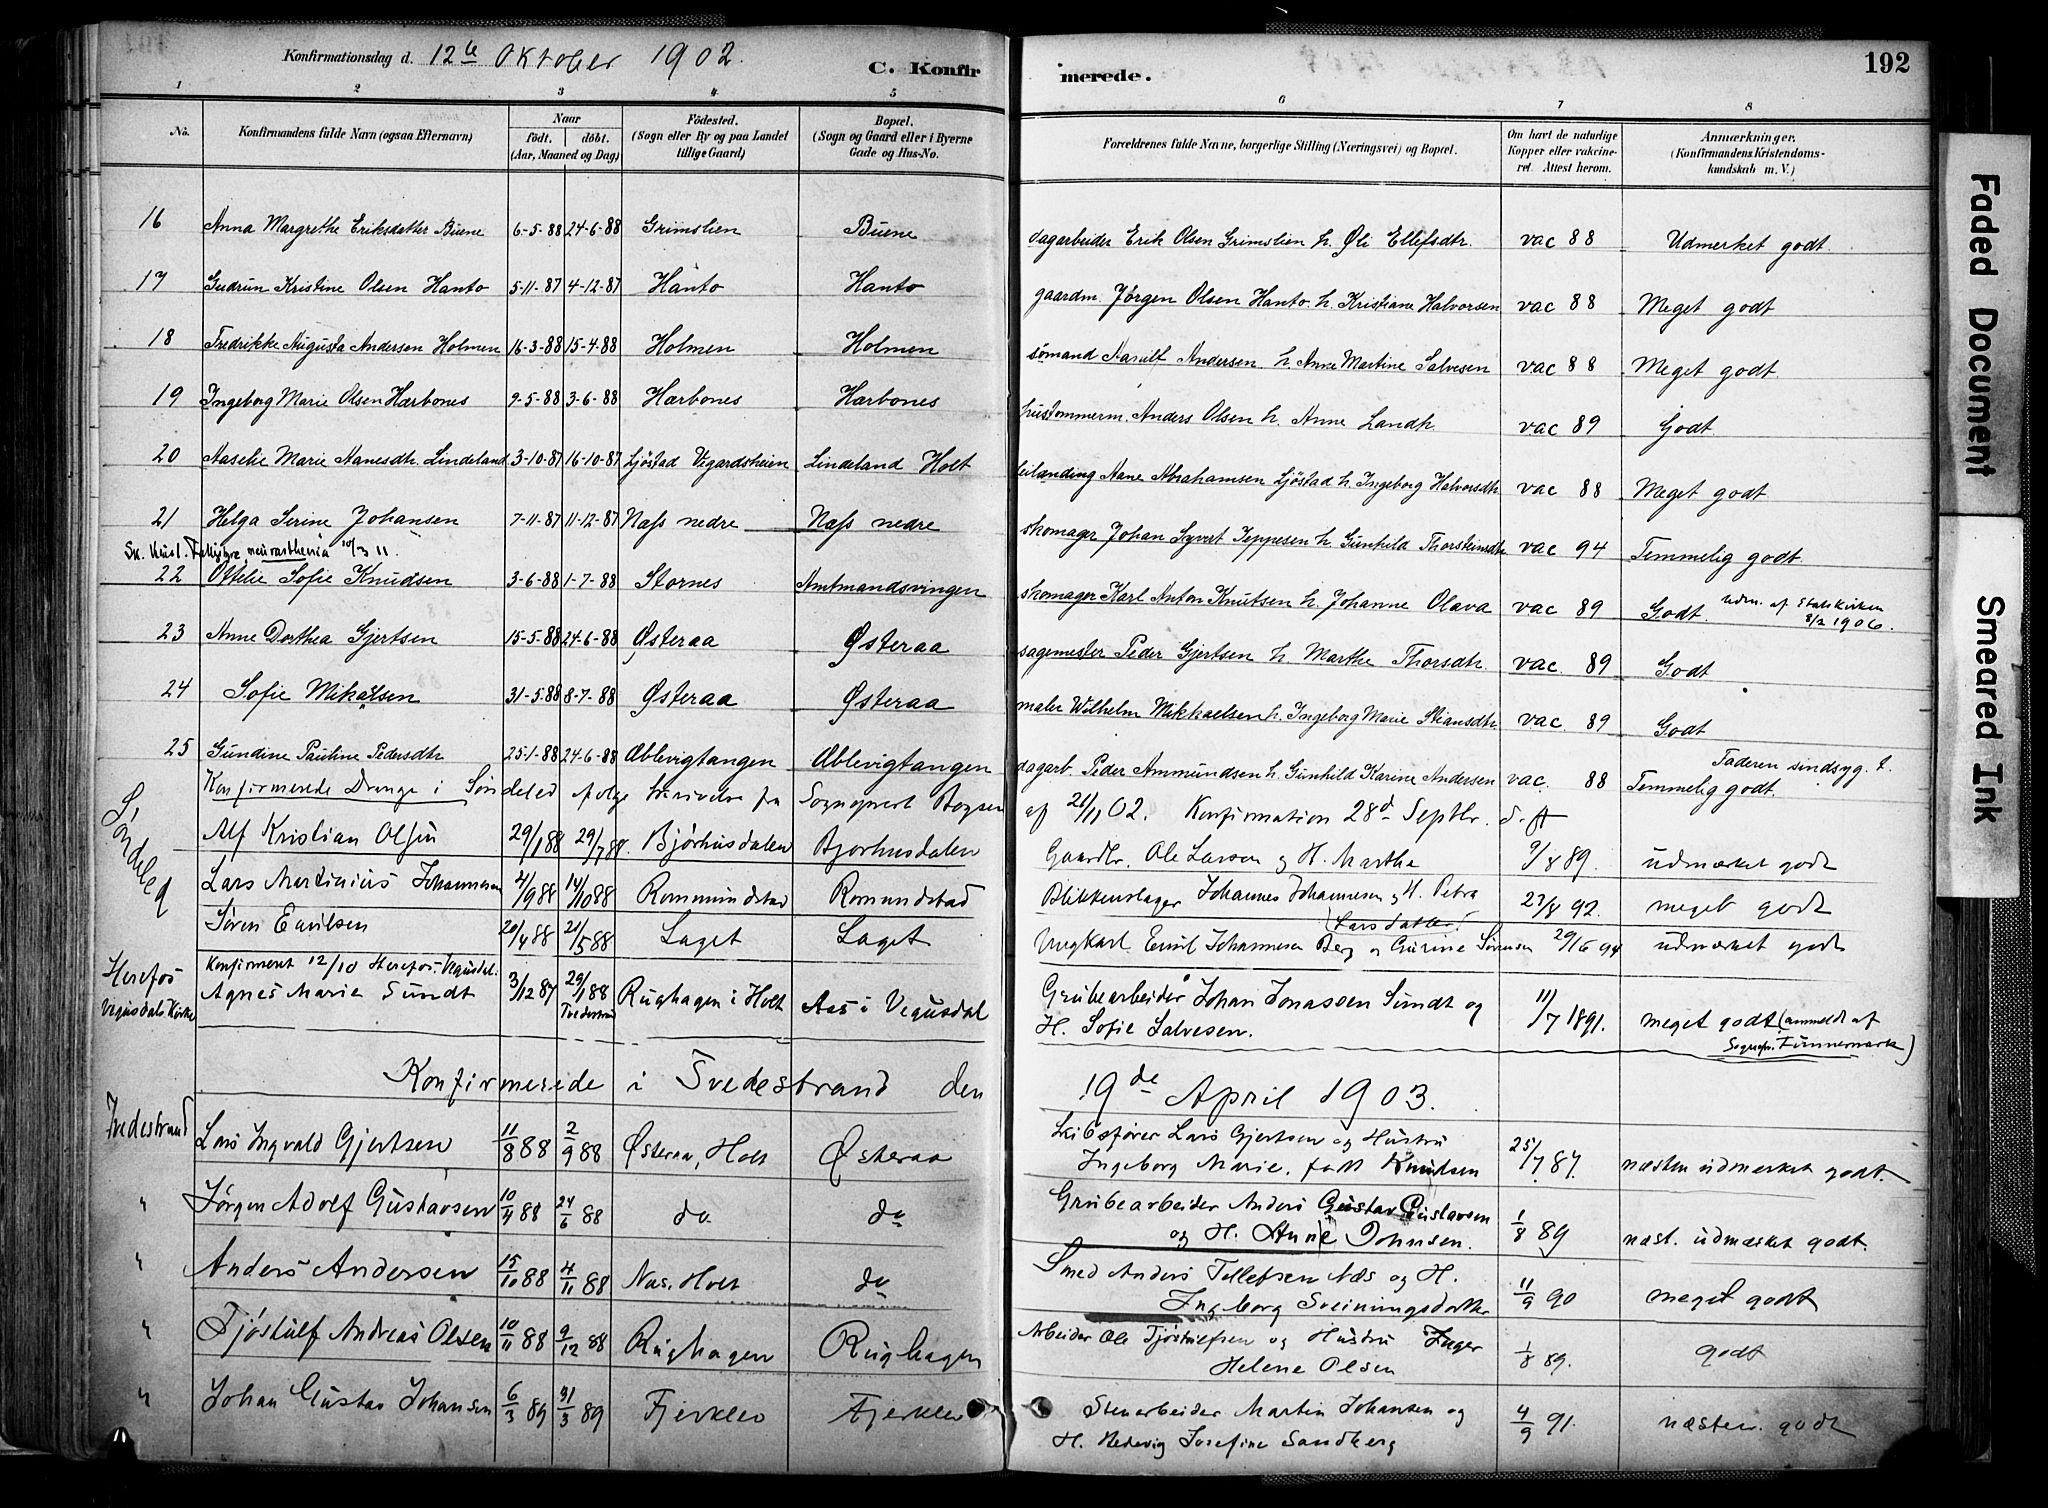 Konfirmationsdag d. 12te Oktober 1902. C. Konfirmerede. 192
1 2 3 4 5 6 7 8
No. Konfirmandens fulde Navn (ogsaa Efternavn) Naar født. døbt. (Aar, Maaned og Dag) Fødested. (Sogn eller By og paa Landet tillige Gaard) Bopæl. (Sogn og Gaard eller i Byerne Gade og Hus-No. Forældrenes fulde Navne, borgerlige Stilling (Næringsvei) og Bopæl. Om havt de naturlige Kopper eller vakcineret. Attest herom. Anmærkninger. (Konfirmandens Kristendomskundskab m. V.)
16 Anna Margrethe Eriksdatter Buene 6-5-88 24-6-88 Grimslien Buene dagarbeider Erik Olsen Grimslien h. Øli Ellefsdtr. vac 88 Udmerket godt
17 Gudrun Kristine Olsen Hanto 5-11-87 4-12-87 Hanto Hanto gaardm. Jørgen Olsen Hanto h. Kristiane Halvorsen vac 88 Meget godt
18 Fredrikke Augusta Andersen Holmen 16-3-88 15-4-88 Holmen Holmen sømand Aanulf Andersen h. Anne Martine Salvesen vac 88 Meget godt
19 Ingeborg Marie Olsen Hærbones 9-5-88 3-6-88 Hærbones Hærbones hustommerm. Anders Olsen h. Anne Landh. vac 89 Godt
20 Aaselie Marie Aanesdtr. Lindeland 3-10-87 16-10-87 Ljøstad Vegardsheien Lindeland Holt leilænding Aane Abrahamsen Ljøstad h. Ingeborg Halvorsdtr vac 88 Meget godt
21 Helga Serine Johansen 7-11-87 11-12-87 Næss nedre Næss nedre skomager Johan Syvert Jeppesen h. Gunhild Thorsteinsdtr vac 94 Temmelig godt.
neurasthenia 10/3 11.
22 Ottelie Sofie Knudsen 3-6-88 1-7-88 Stornes Amtmandsvingen skomager Karl Anton Knutsen h. Johanne Olava vac 89 Godt. Udm. af Statskirken 8/2 1906.
23 Anne Dorthea Gjertsen 15-5-88 24-6-88 Østeraa Østeraa sagemester Peder Gjertsen h. Marthe Thorsdtr. vac. 89 Godt
24 Sofie Mikalsen 31-5-88 8-7-88 Østeraa Østeraa maler Wilhelm Mikkaelsen h. Ingeborg Marie Stiansdtr vac. 89 Godt
25 Gundine Pauline Pedersdtr 25-1-88 24-6-88 Æblevigtangen Æblevigtangen dagarb. Peder Ammundsen h. Gunhild Karine Andersen vac. 88 Faderen sindsyg. Temmelig godt.
Konfirmerede Drenge i Søndeled ifølge skrivelse fra Sogneprest af 21/11 02. Konfirmation 28d Septbr. d. A
Søndeled Alf Kristian Olsen 29/1 88 29/7 88. Bjørhusdalen Bjørhusdalen Gaardbr. Ole Larsen og H. Martha 9/8 89. udmærket godt
Lars Martinius Johannesen 4/9 88 14/10 88 Rommundstad Romundstad Blikkenslager Johannes Johannesen og H. Petra (Larsdatter) 27/8 92. meget godt
Søren Emilsen 20/4 88 21/5 88 Laget Laget Ungkarl Emil Johannesen Berg og Gurine Sørensen 29/6 94 udmærket godt
Herefos Vegusdals Kirke Konfirmeret 12/10 Herefos. Vegusdal.
Agnes Marie Sundt 3/12 87 29/1 88 Tvedestrand Rughagen i Holt Aas i Vegusdal Grubearbeider Johan Jonassen Sundt og H. Sofie Salvesen. 11/7 1891. meget godt (anmeldt af Sognepr. Finnemark)
Konfirmerede i Tvedestrand den 19de April 1903.
Tvedestrand Lars Ingvald Gjertsen 11/8 88 2/9 88 Østeraa, Holt Østeraa Skibsfører Lars Gjertsen og Hustru Ingeborg Marie, født Knudsen 25/7 87. næsten udmerket godt.
" Jørgen Adolf Gustavsen 10/4 88 24/6 88 do do Grubearbeider Anders Gustav Gustavsen og H. Anne Johnsen. 1/8 89 næst. udmærket godt.
" Anders Andersen 15/10 88 4/11 88 Næs. Holt do Smed Anders Tellefsen Næs og H. Ingeborg Sveinungsdatter 11/9 90 meget godt
" Tjøstulf Andreas Olsen 10/11 88 9/12 88 Rughagen Rughagen Arbeider Ole Tjøstulfsen og Hustru Inger Helene Olsen 1/8 89. godt
" Johan Gustav Johansen 6/3 89 31/3 89 Fjerkleo Fjerkleo Stenarbeider Martin Johansen og H. Hedevig Josefine Sandberg 4/9 91. næsten godt
Faded Document
Smeared Ink